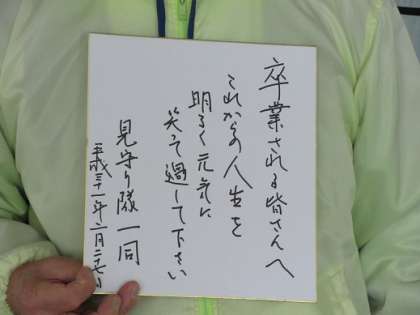 卒業される皆さんへ
これからの人生を
明るく元気に
笑って過して下さい
見守り隊一同
平成三十一年二月二十七日